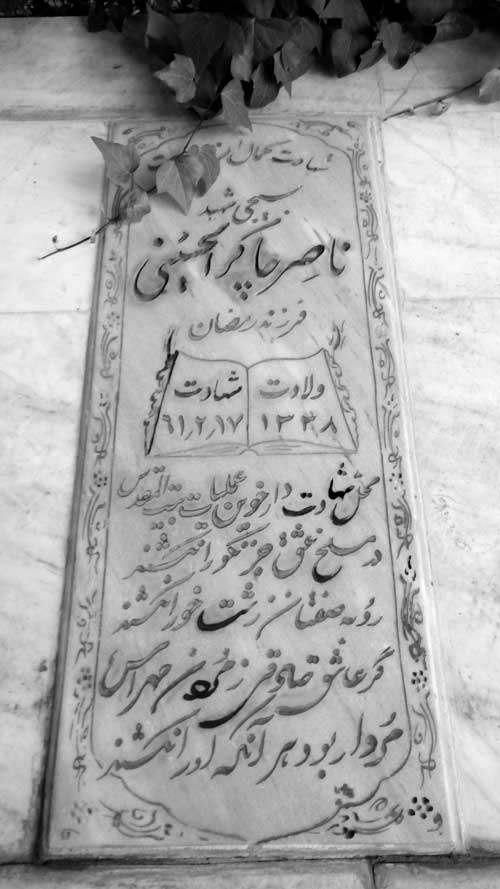 شهادت کمال انسان است
بسیجی شهید
ناصر چاکرالحسینی
فرزند رمضان
ولادت ۱۳۳۸
شهادت ۶۱٫۲٫۱۷
محل شهادت دارخوین عملیات بیت المقدس
در مسلخ عشق جز نکو را نکشند
روبه صفتان زشت خو را نکشند
گر عاشق صادقی ز مردن مهراس
مردار بود هر آنکه او را نکشند